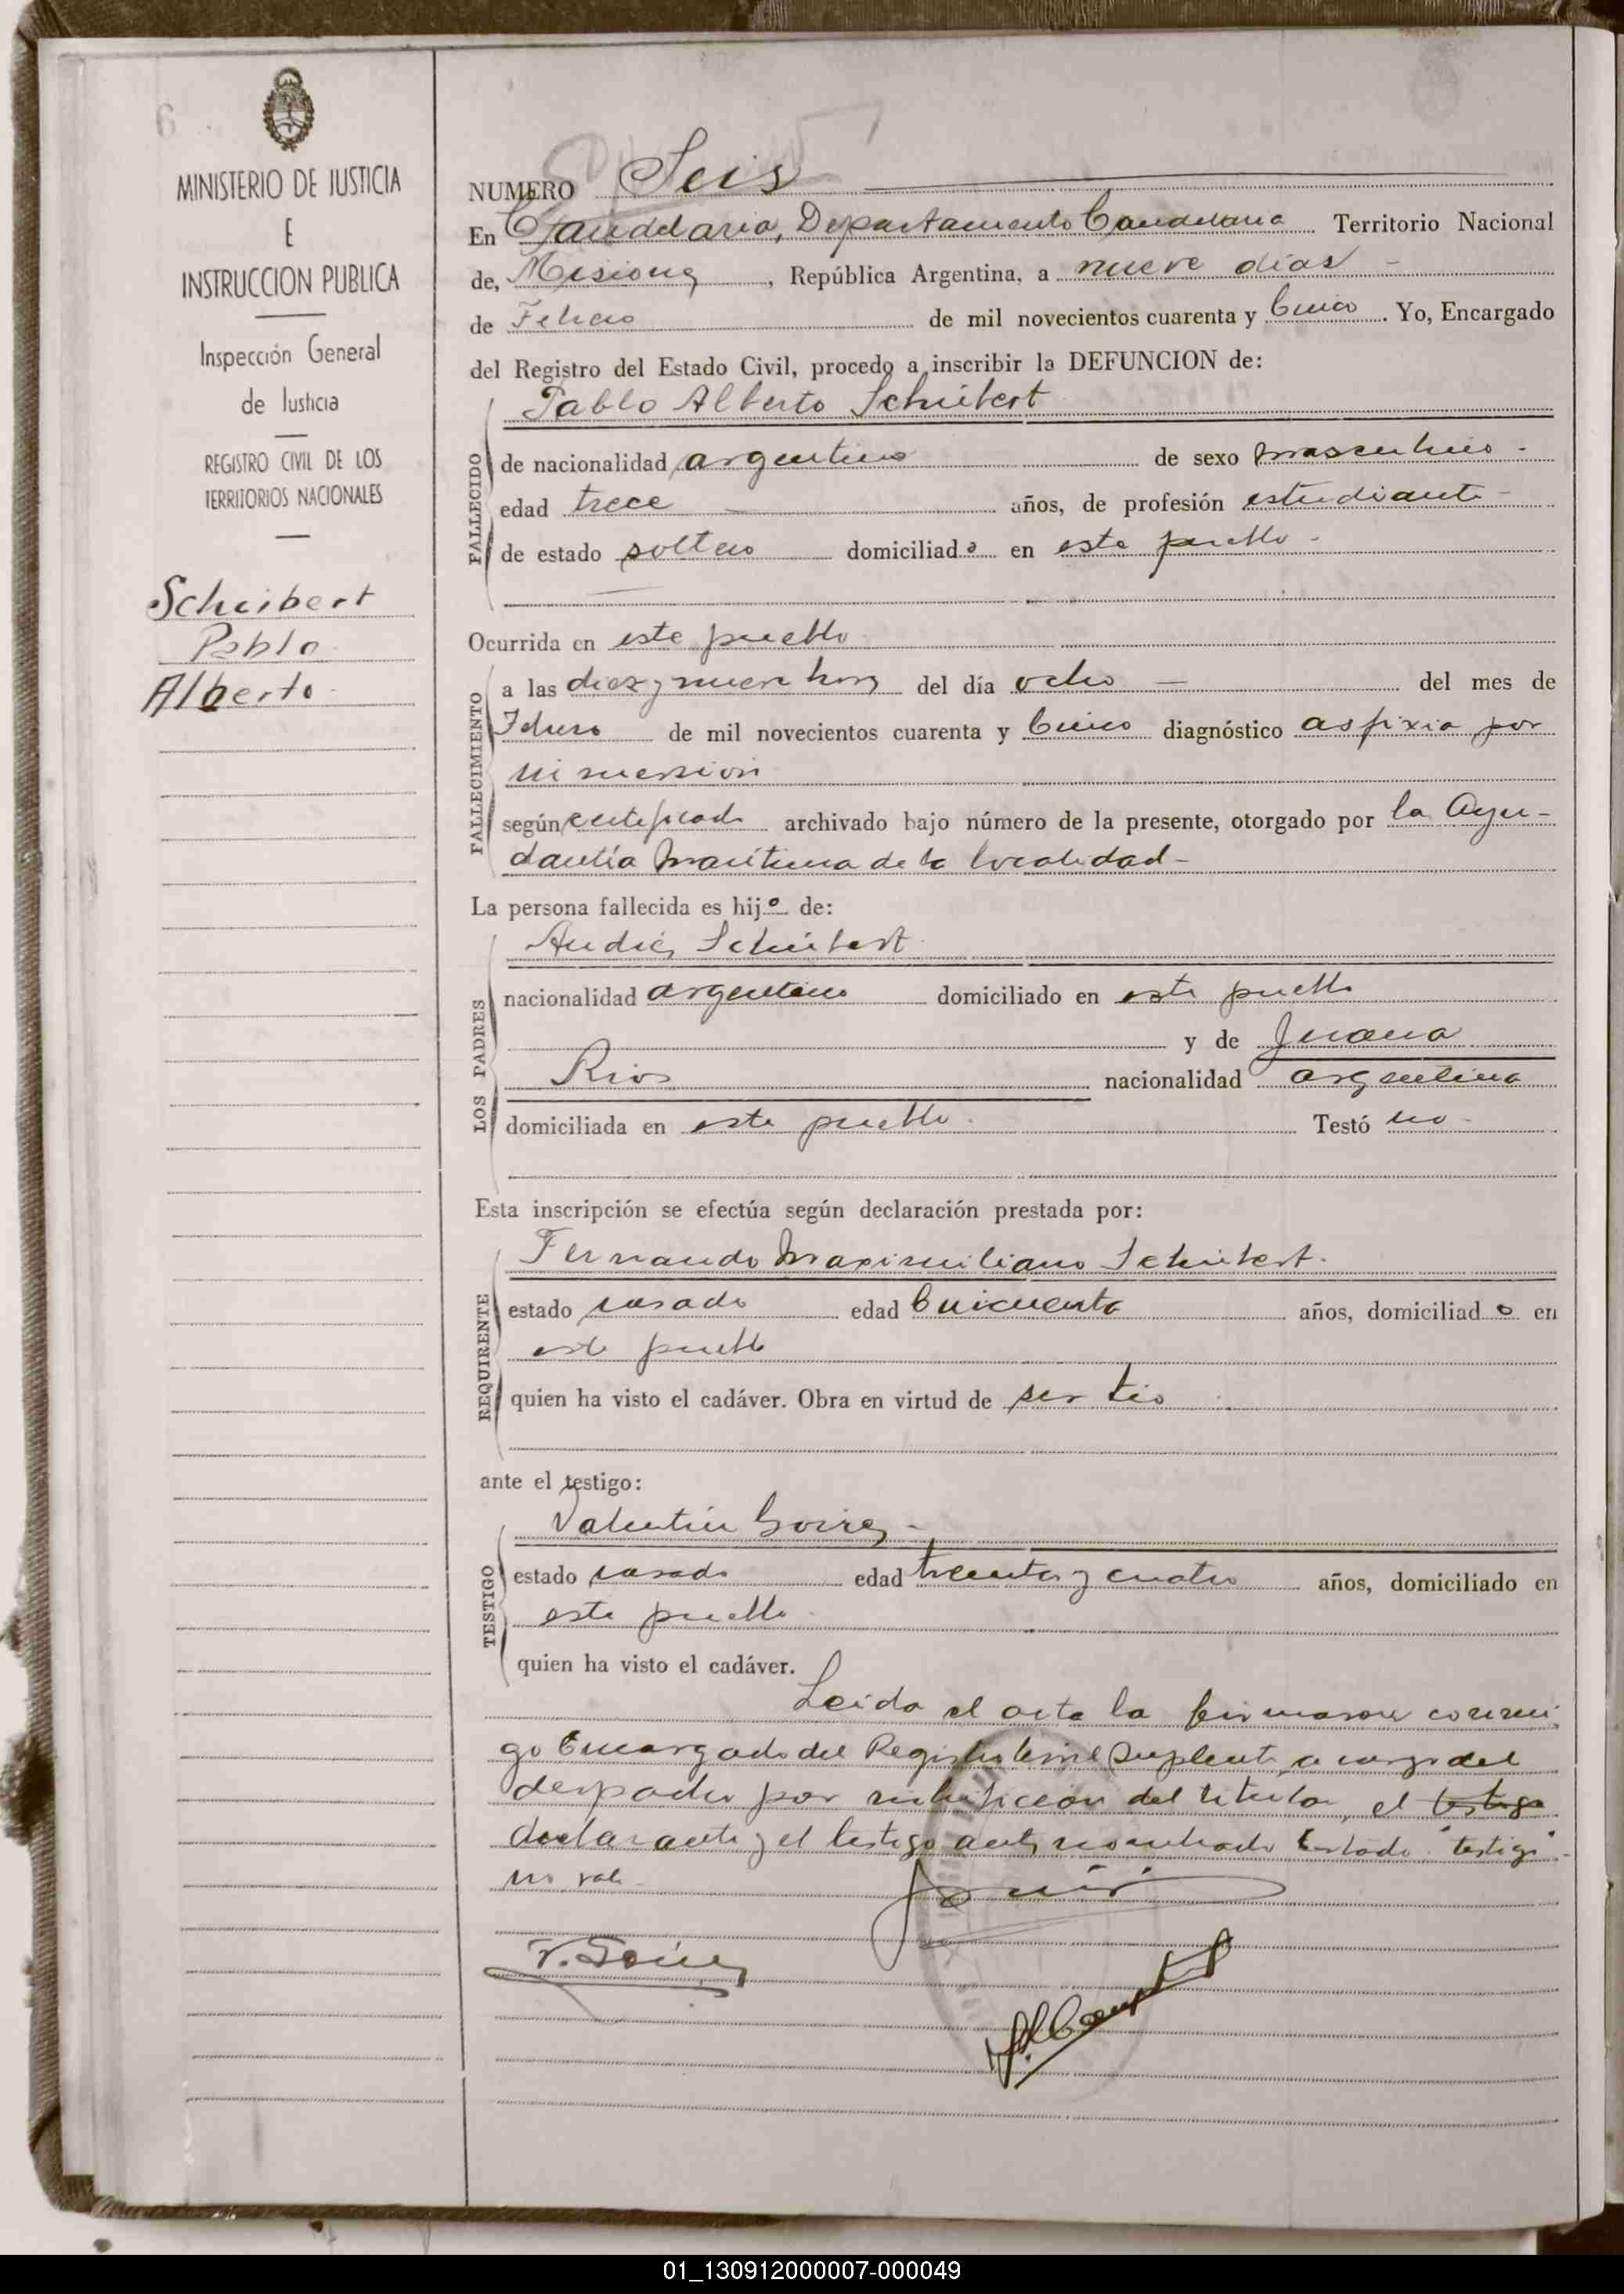 6
MINISTERIO DE JUSTICIA
E
INSTRUCCION PUBLICA
Inspección General
de Justicia
REGISTRO CIVIL DE LOS
TERRITORIOS NACIONALES
Scheibert
Pablo
Alberto
NUMERO Seis
En Candelaria, Departamento Candelaria Territorio Nacional
de, Misiones, República Argentina, a nueve días
de Febrero de mil novecientos cuarenta y Cinco. Yo, Encargado
del Registro del Estado Civil, procedo a inscribir la DEFUNCION de:
Pablo Alberto Scheibert
FALLECIDO
de nacionalidad argentino de sexo masculino
edad trece años, de profesión estudiante
de estado soltero domiciliado en este pueblo
Ocurrida en este pueblo
FALLECIMIENTO
a las diez y nueve horas del día ocho del mes de
Febrero de mil novecientos cuarenta y Cinco diagnóstico asfixia por
inmersión
según certificado archivado bajo número de la presente, otorgado por la Ayu-
dantía Marítima de la localidad
La persona fallecida es hijo de:
Andrés Scheibert
LOS PADRES
nacionalidad argentino domiciliado en este pueblo
y de Juana
Rios nacionalidad argentina
domiciliada en este pueblo. Testó no
Esta inscripción se efectúa según declaración prestada por:
Fernando Maximiliano Scheibert.
REQUIRENTE
estado casado edad Cincuenta años, domiciliado en
este pueblo
quien ha visto el cadáver. Obra en virtud de ser tio
ante el testigo:
Valentin
TESTIGO
estado casado edad treinta y cuatro años, domiciliado en
este pueblo
quien ha visto el cadáver.
Leida el acta la firmaron conmi
go Encargado del Registro Civil Suplente, a cargo del
despacho por del titular, el testigo
declarante y el testigo antes nombrado Testado "testigo"
no vale
01_130912000007-000049